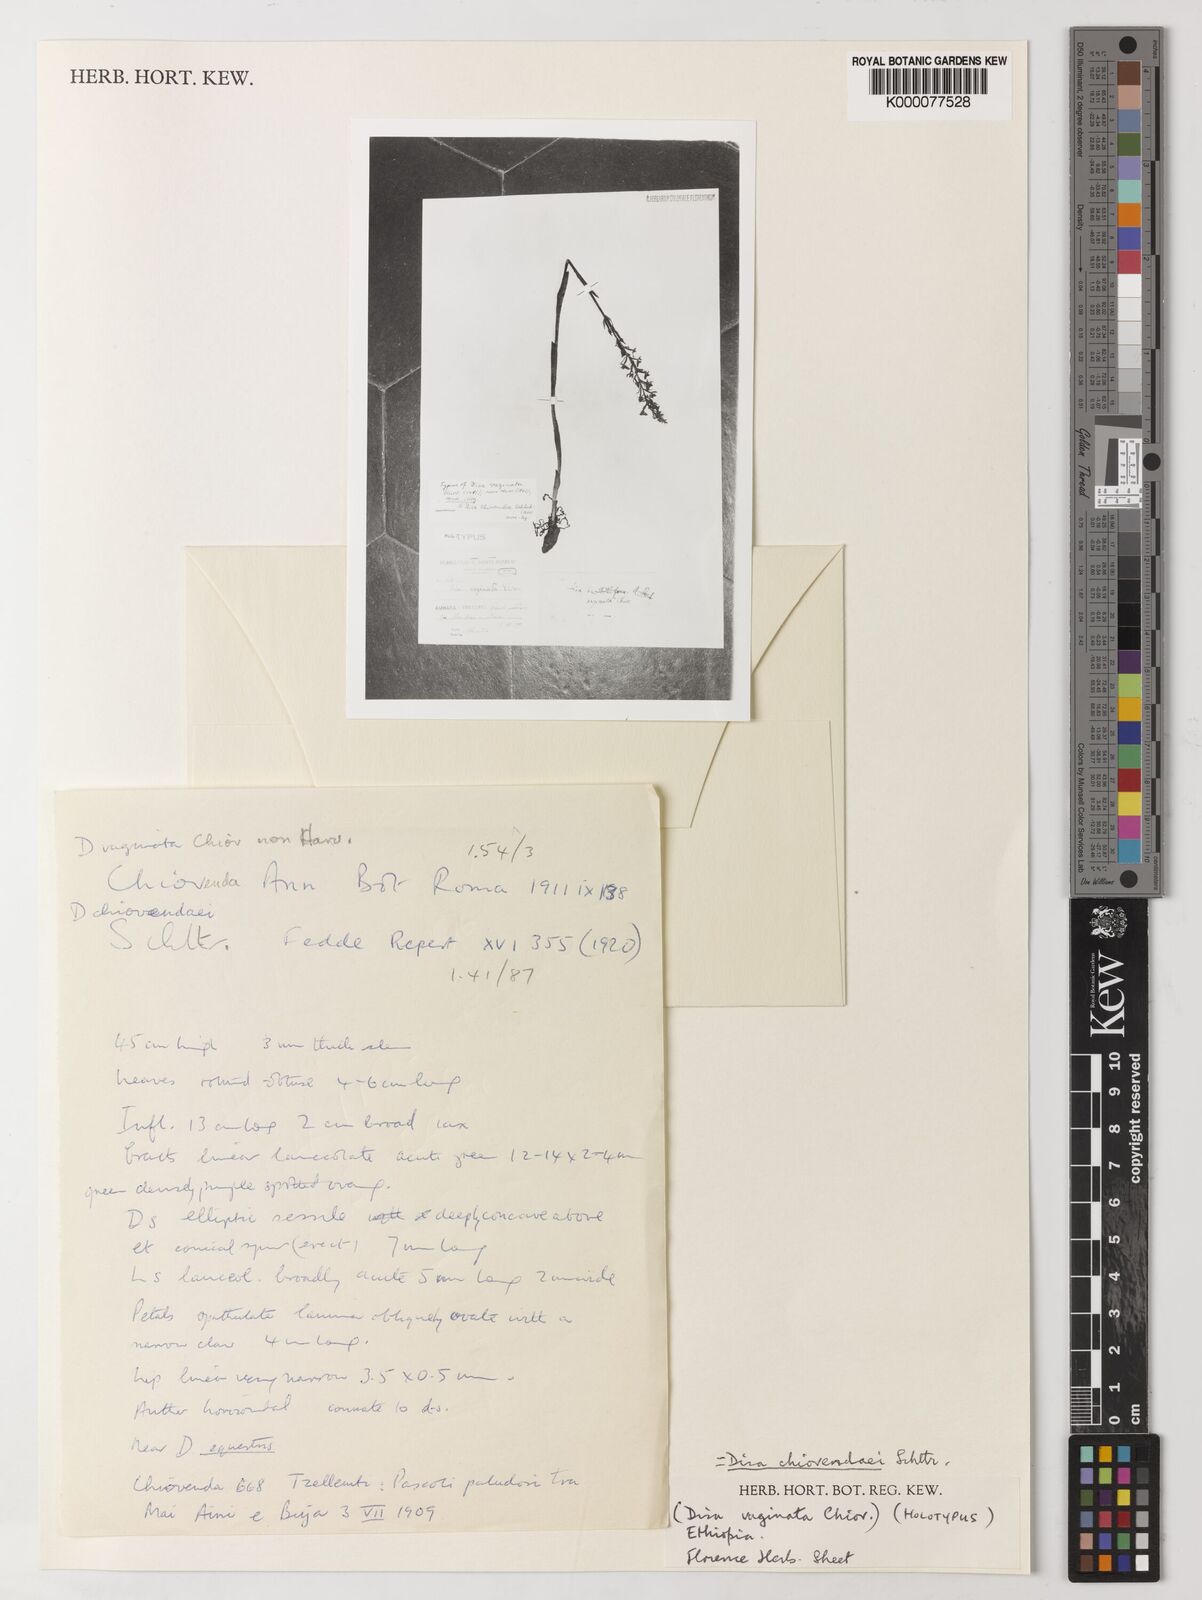 HERB. HORT. KEW.
ROYAL BOTANIC GARDENS KEW
K000077528
TYPUS
D vaginata Chiov non Harv.
1.54/3
Chiovenda Ann Bot Roma 1911 ix 138
D chiovendaei
Schltr. Fedde Repert XVI 355 (1920)
1.41/87
45 cm high 3 mm thick stem
Leaves obtuse 4-6 cm long
Infl. 13 cm long 2 cm broad lax
bracts linear lanceolate acute green 12-14 x 2-4 mm
green densely purple spotted
Ds elliptic sessile deeply concave above
et conical spur (erect) 7 mm long
Ls lanceol. broadly acute 5 mm long 2 mm wide
Petals spathulate lamina obliquely ovate with a
narrow claw 4 mm long.
Lip linear very narrow 3.5 x 0.5 mm.
Anther horizontal connate to ds.
Near D equestris
Chiovenda 668 Tzellemti: Pascoli paludosi tra
Mai Aini e Buja 3 VII 1909
= Disa chiovendaei Schltr.
HERB. HORT. BOT. REG. KEW.
(Disa vaginata Chiov.) (HOLOTYPUS)
Ethiopia.
Florence Herb. Sheet
D50 Illuminant, 2 degree observer
Density
Golden Thread
Colors by Munsell Color Services Lab
Don Williams
inches
Royal Botanic Gardens
Kew
0 1 2 3 4 5 6 7 8 9 10
cm
copyright reserved